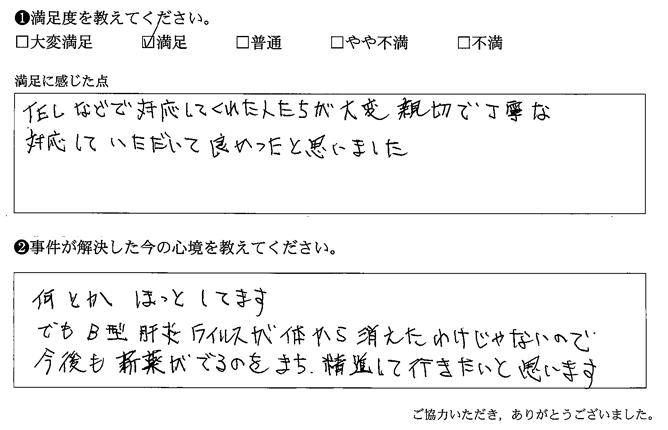 ❶満足度を教えてください。
□大変満足 ☑満足 □普通 □やや不満 □不満
満足に感じた点
などで対応してくれた人たちが大変親切で丁寧な
対応していただいて良かったと思いました
❷事件が解決した今の心境を教えてください。
何とか ほっとしてます
でもB型肝炎ウイルスが体から消えたわけじゃないので
今後も新薬がでるのをまち、精進して行きたいと思います
ご協力いただき，ありがとうございました。